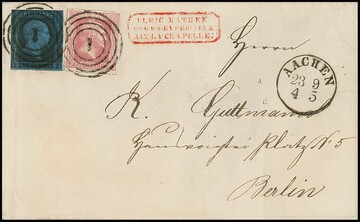 ULRIC MATHEE
AIX LA CHAPELLE
Herrn
AACHEN
23 9
4 5
K. Guttmann
Hausvoigtei Platz No 5
Berlin